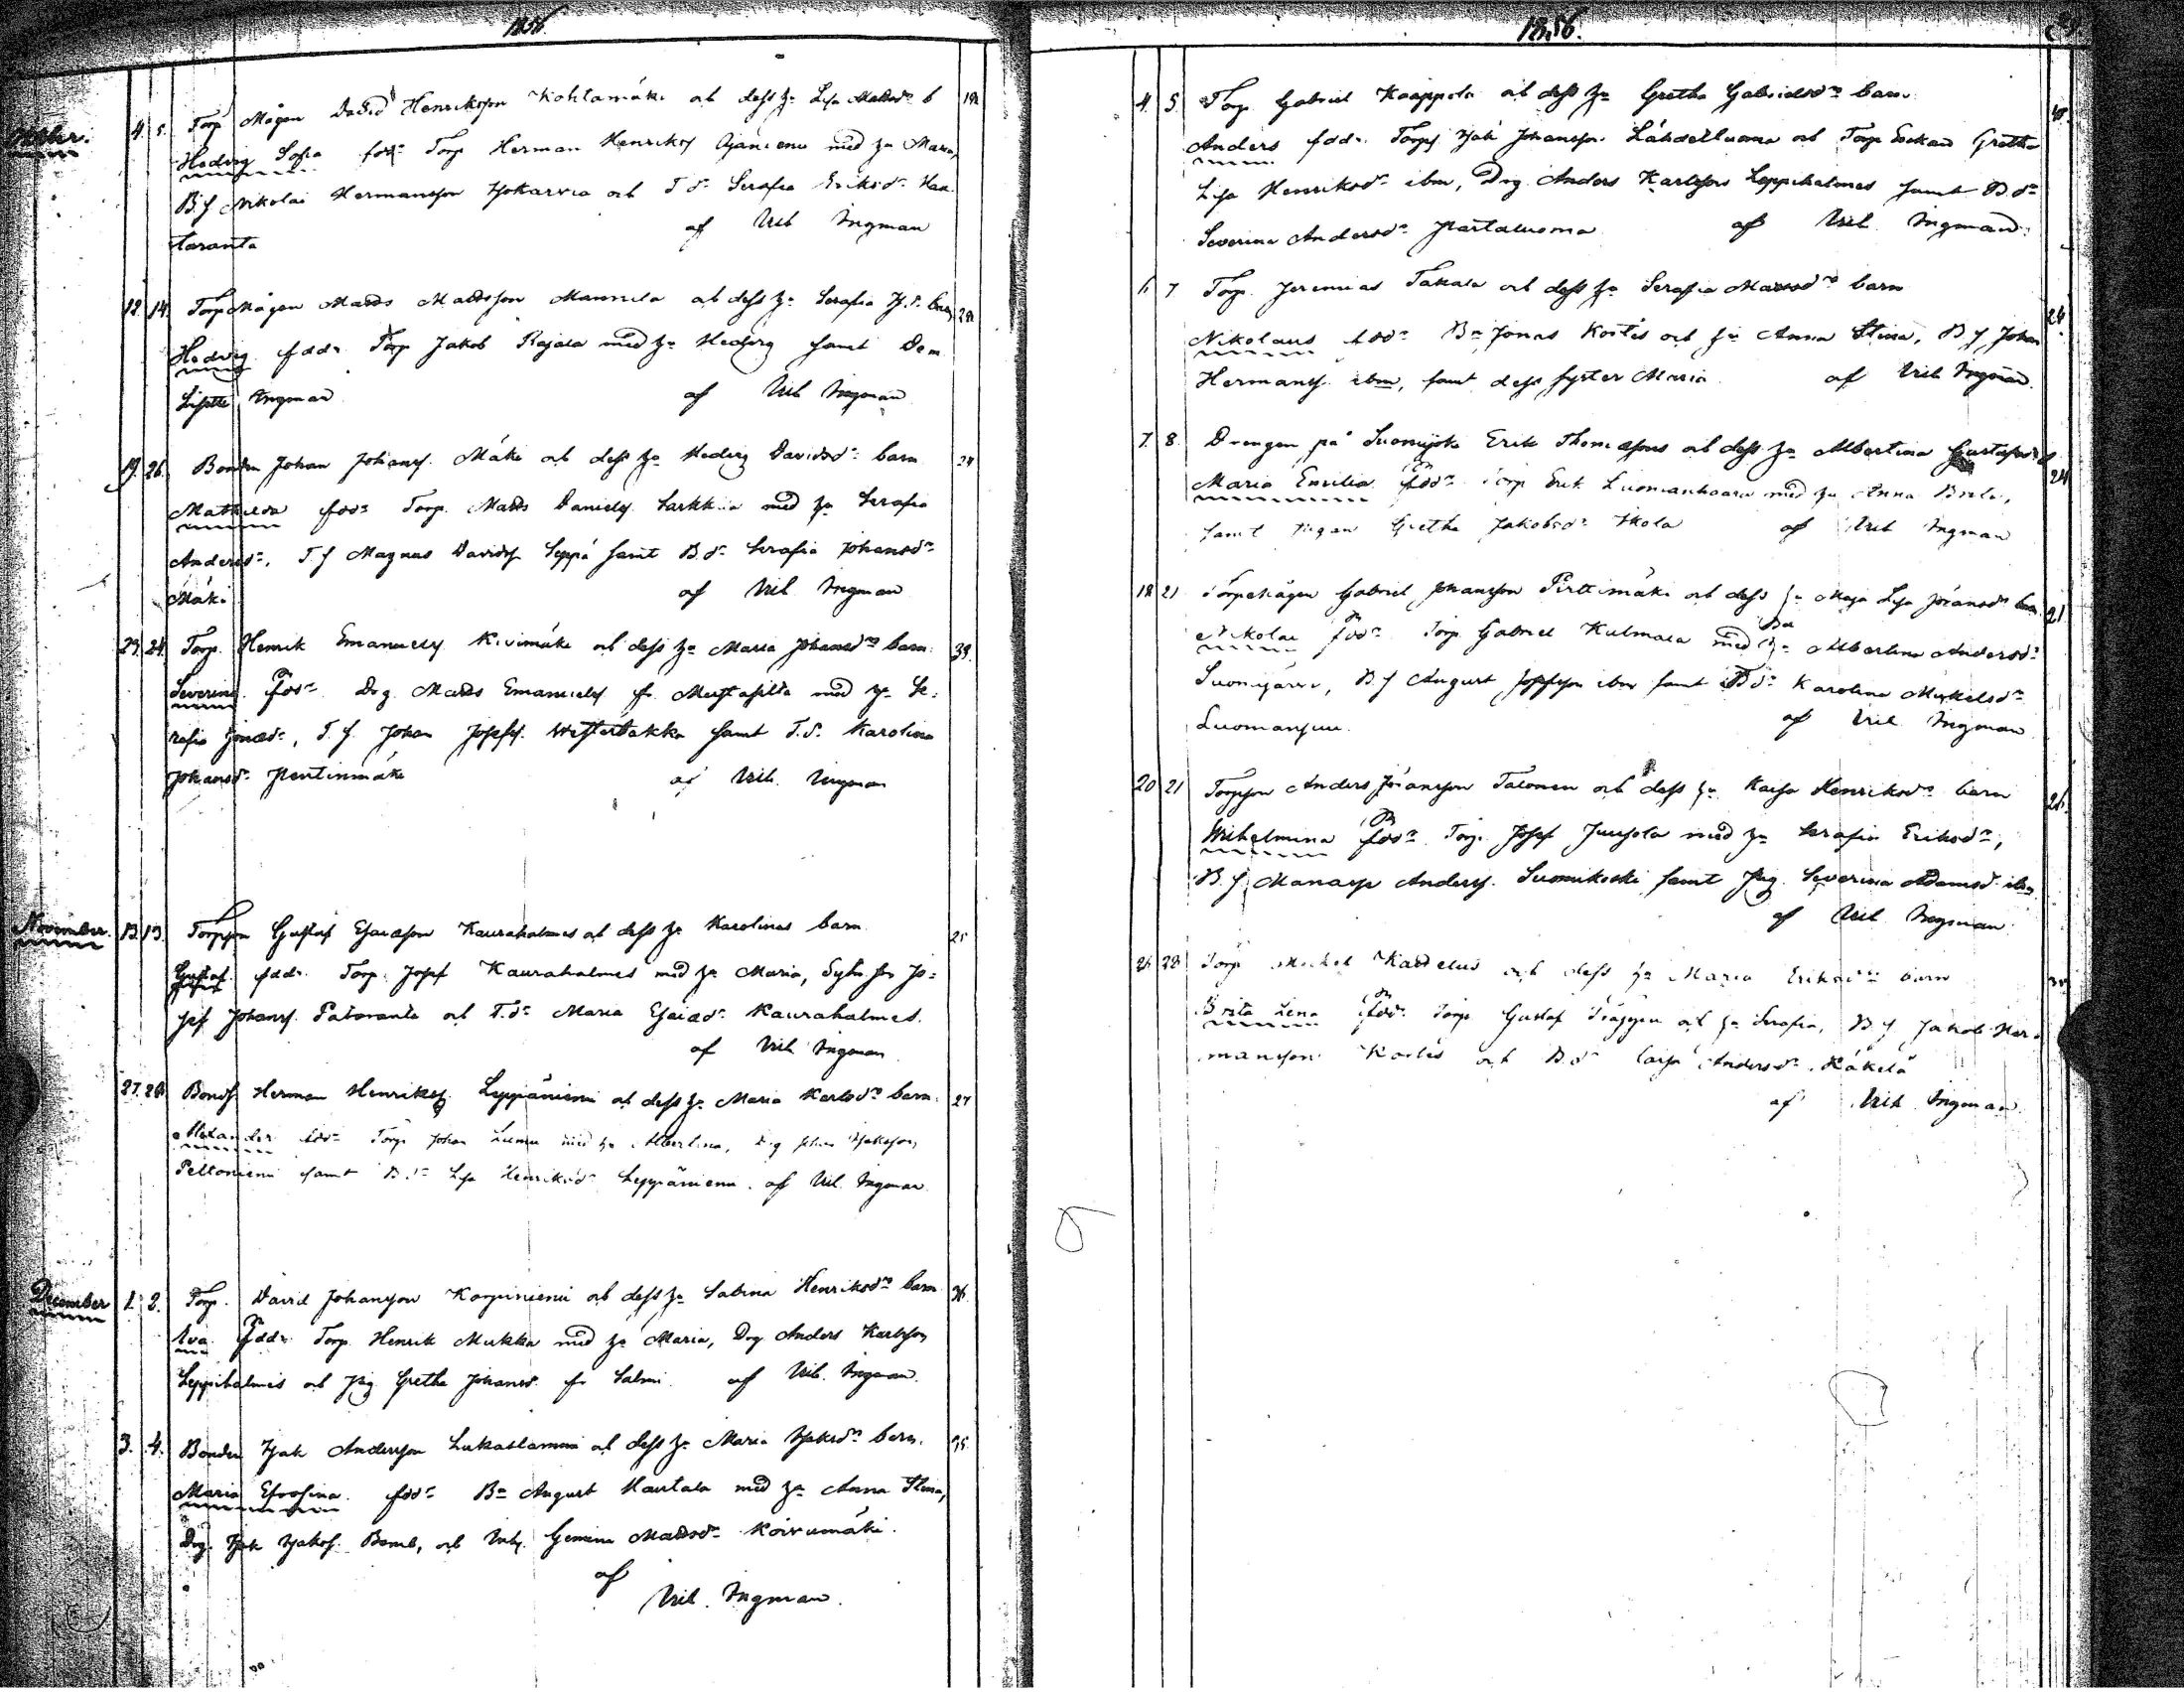 1856.
4. 5. Torp Mågen David Henriksson Kohtamäki och dess h:a Lisa Mattsd:r b 18
Hedvig Sofia fadd:r Torp Herman Henrikss Ojaniemi med h:a Maria,
B.S. Nikolai Hermansson Yokarvia och T.d:r Serafia Eriksd:r Han
taranta af Vik Ingman
12. 14. Torp Mågen Matts Mattsson Mannila och dess h:a Serafia barn 28
Hedvig fadd:r Torp Jakob Rajala med h:a Hedvig samt Dem
Lisette Ingman af Vik Ingman
19. 26. Bonden Johan Johanss. Mäki och dess h:a Hedvig Davidsd:r barn 24
Mathilda fadd:r Torp. Matts Daniels. Sarkkila med h:a Serafia
Andersd:r, T.S Magnus Davids Seppä samt B.d:r Serafia Johansd:r
Mäki af Vik Ingman
23. 24. Torp. Henrik Emanuels Kivimäki och dess h:a Maria Johansd:r barn. 39.
Severina fadd:r Drg. Matts Emanuels fr. Mustasilta med h:a Se=
rafia Jonasd:r, T.S. Johan Josefss. Westerbakka samt T.d. Karolina
Johansd:r Pentinmäki af Vik. Ingman
November. 13. 13. Torpson Gustaf Esaiasson Kaurahalmes och dess h:a Karolinas barn 25
Gustaf. fadd:r. Torp. Josef Kaurahalmes med h:a Maria, Jo=
sef Johanss. Patoranta och T.d:r Maria Esaiasd:r Kaurahalmes.
af Vik Ingman
27. 28. Bonds Herman Henrikss. Leppäniemi och dess h:a Maria Karlsd:r barn. 27
Alexander fadd:r Torp. Johan Luoma med h:a Albertina, Drg Johan Isaksson
Peltoniemi samt B.d:r Lisa Henriksd:r Leppäniemi. af Vik. Ingman
December 1. 2. Torp. David Johansson Karpiniemi och dess h:a Sabina Henriksd:r barn 36.
Eva fadd:r Torp. Henrik Mukka med h:a Maria, Drg Anders Karlsson
Leppihalmes och Pig Gretha Johansd. fr Salmi. af Vik. Ingman.
3. 4. Bonden Isak Andersson Lukaslammi och dess h:a Maria Isaksd:r barn. 35.
Maria Efrosina. fadd:r B:n August Hautala med h:a Anna Stina,
Drg. Isak Isakss. Bomb, och Gemina Mattsd:r Koivumäki.
af
Vik. Ingman.
1856.
4. 5. Torp. Gabriel Kaappola och dess h:a Gretha Gabrielsd:r barn
Anders fadd:r. Torps Isak Johansson Lähdeluoma och Torp Enkan Gretha
Lisa Henriksd:r ibm, Drg. Anders Karlsson Leppihalmes samt B.d:r
Severina Andersd:r Partaluoma af Vik. Ingman.
6 7 Torp. Jeremias Takala och dess h:a Serafia Mattsd:r barn 24
Nikolaus fadd:r B:n Jonas Kortes och h:a Anna Stina, B.S Johan
Hermanss. ibm, samt dess syster Maria af Vik Ingman.
7. 8. Drengen på Suomijoki Erik Thomasson och dess h:a Albertina Gustafsd:r 24
Maria Emilia fadd:r Torp Erik Luomanhaara med h:a Anna Brita,
samt Pigan Gretha Jakobsd:r Skola af Vik Ingman
18 21 Torpmågen Gabriel Johansson Pirttimäki och dess h:a Maja Lisa Johansd:r barn 21
Nikolai fadd:r Torp Gabriel Kulmala med h:a Albertina Andersd:r
Suomijärvi, B.S August Josefsson ibm samt B.d:r Karolina Mikkelsd:r
Luomansuu. af Vik Ingman
20 21 Torpson Anders Johansson Talonen och dess h:a Kaisa Henriksd:r barn 26.
Wilhelmina fadd:r Torp. Josef Juusola med h:a Serafia Eriksd:r,
B.S. Manasse Anderss. Suomikoski samt Pig. Severina Adamsd. ibm
af Vik. Ingman.
26 28 Torp Mikkel Kattelus och dess h:a Maria Eriksd:r barn
Brita Lena fadd:r Torp Gustaf och h:a Serafia, B.S Jakob Her=
mansson Kortes och B.d:r Caisa Andersd:r. Käkelä
af Vik. Ingman.